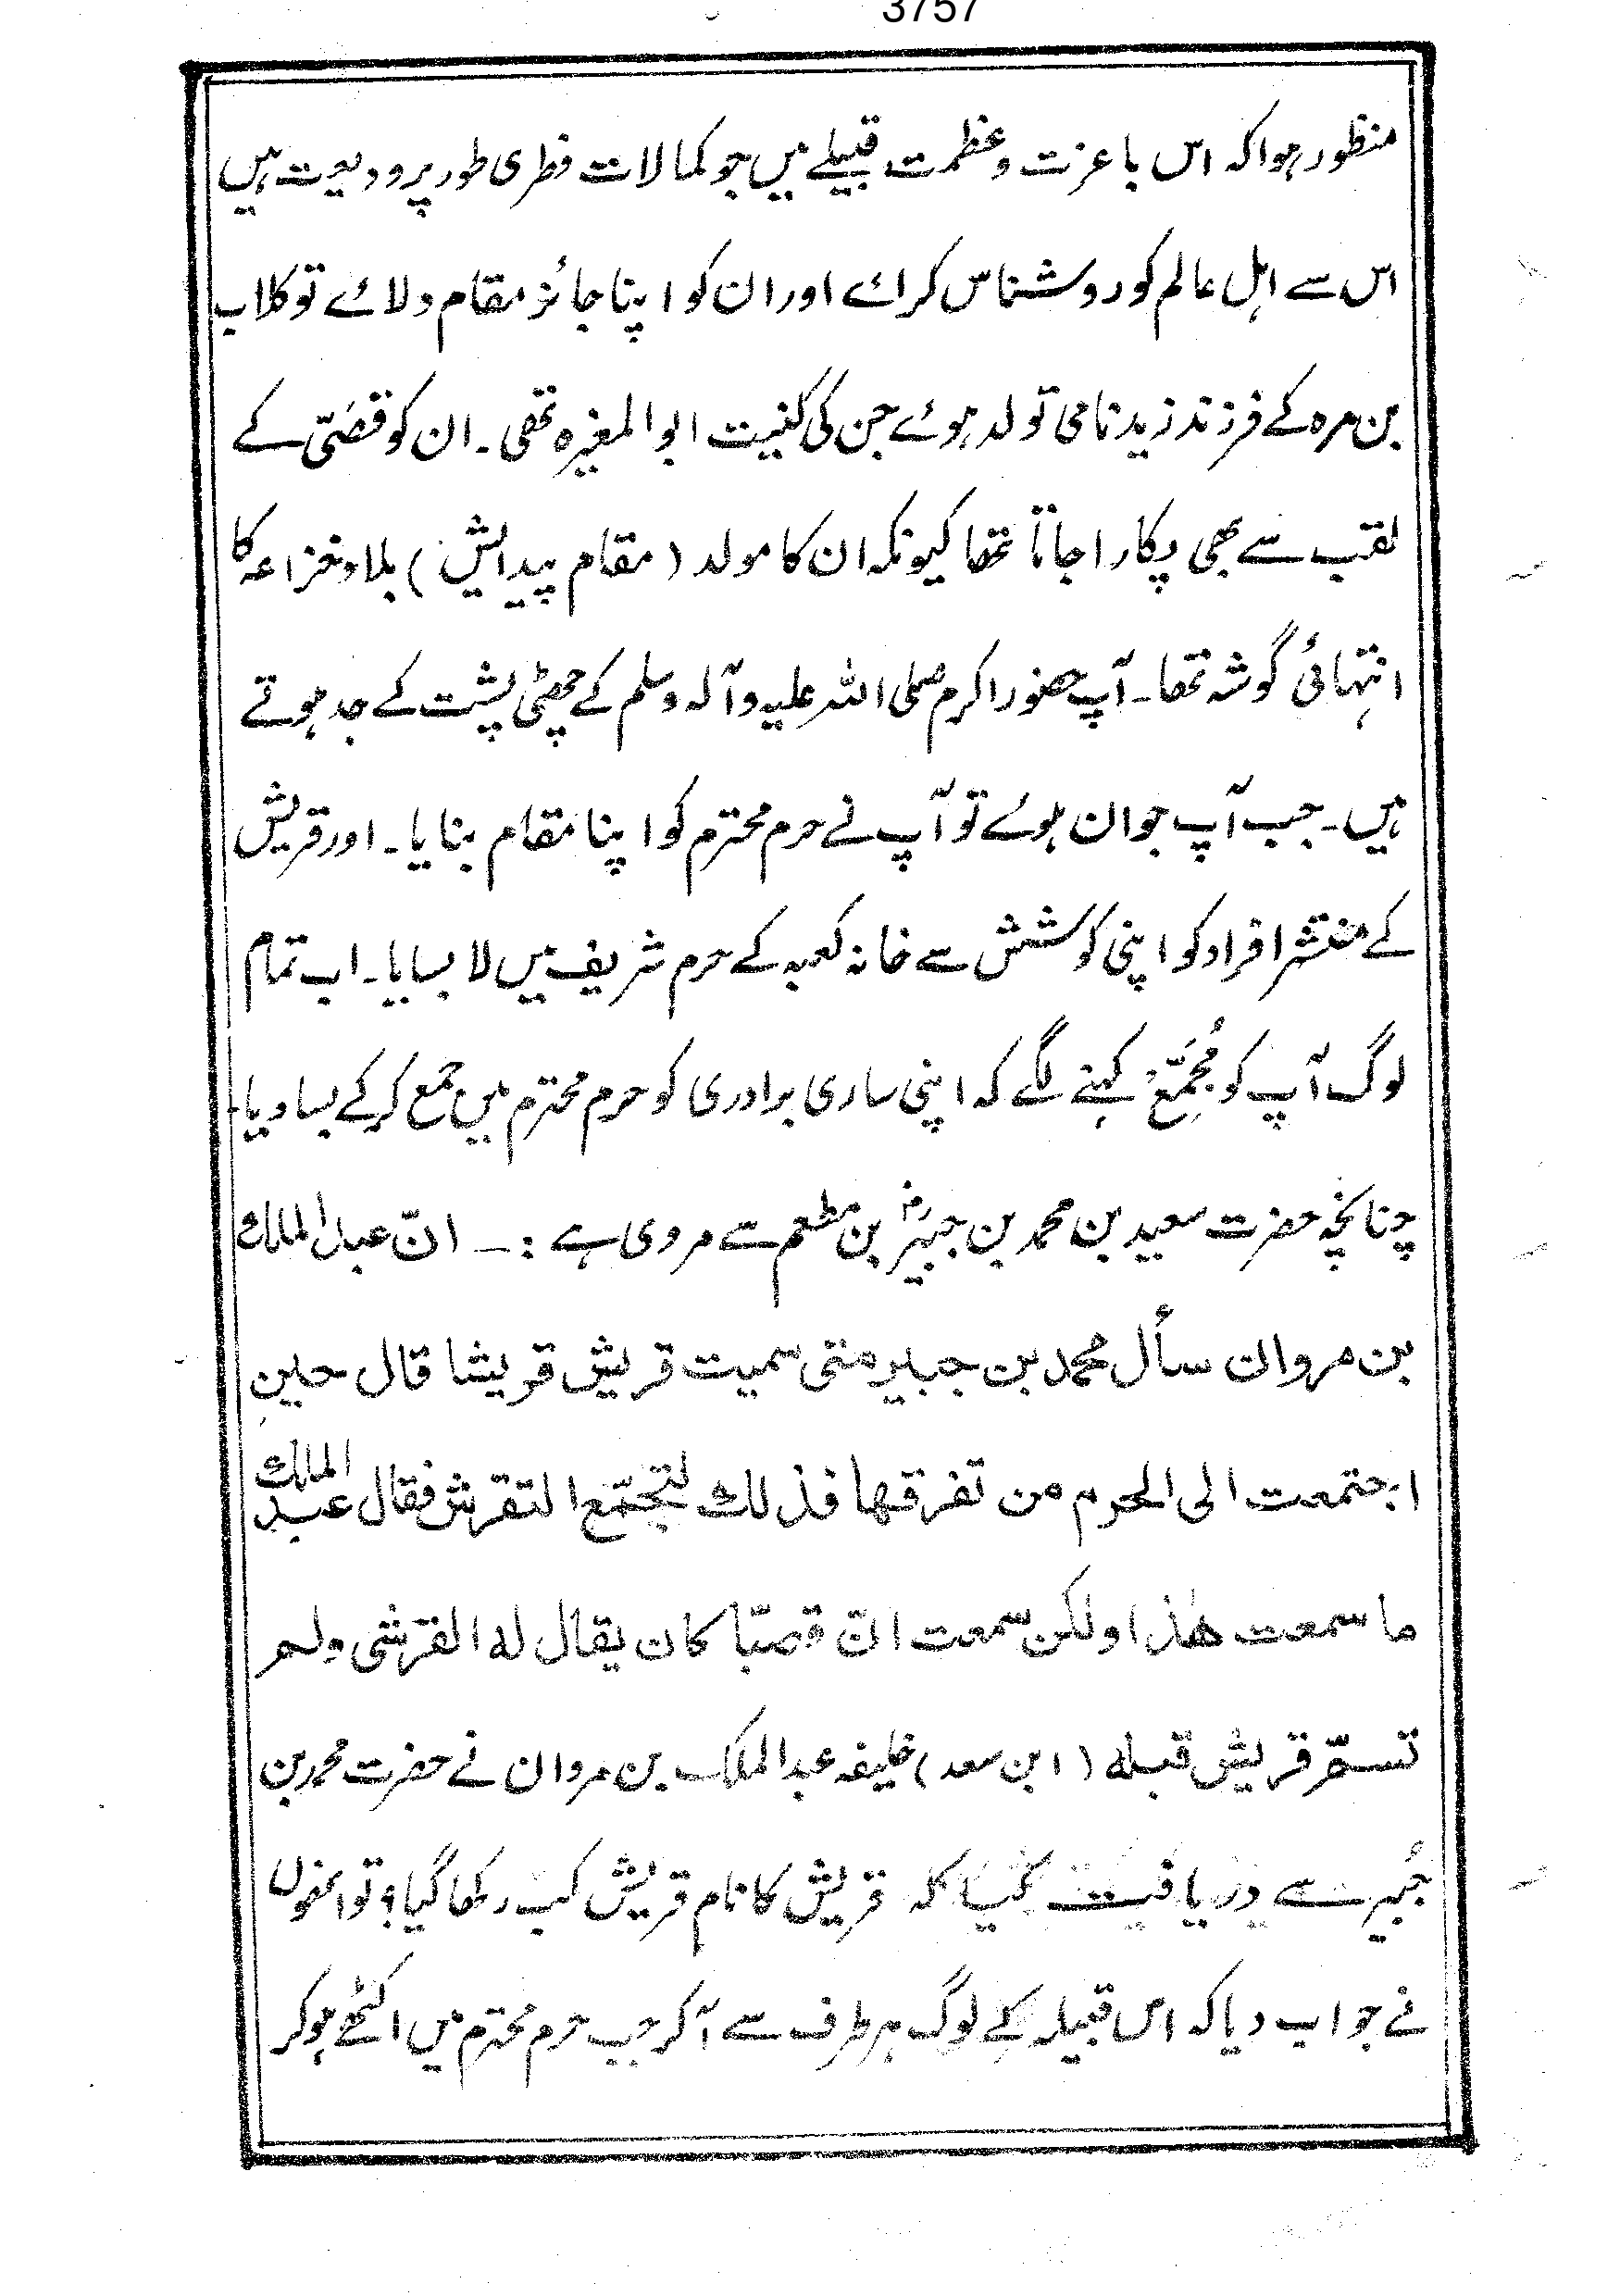 3757
منظور ہوا کہ اس با عزت و عظمت قبیلے میں جو کمالات فطری طور پر ودیعت ہیں
اس سے اہل عالم کو روشناس کرائے اور ان کو اپنا جائز مقام دلائے تو کلاب
بن مرہ کے فرزند زید نامی تولد ہوئے جن کی کنیت ابوالمغیرہ تھی۔ ان کو قصَیّ کے
لقب سے بھی پکارا جاتا تھا کیونکہ ان کا مولد (مقام پیدائش) بلاد خزاعہ کا
انتہائی گوشہ تھا۔ آپ حضور اکرم صلی اللہ علیہ و آلہ وسلم کے چھٹی پشت کے جد ہوتے
ہیں۔ جب آپ جوان ہوئے تو آپ نے حرم محترم کو اپنا مقام بنایا۔ اور قریش
کے منتشر افراد کو اپنی کوشش سے خانہ کعبہ کے حرم شریف میں لا بسایا۔ اب تمام
لوگ آپ کو مُجَمِّعْ کہنے لگے کہ اپنی ساری برادری کو حرم محترم میں جمع کر کے بسا دیا۔
چنانچہ حضرت سعید بن محمد بن جبیرؓ بن مطعم سے مروی ہے :ــ انّ عبد الملك
بن مروان سأل محمد بن جبير متى سميت قريش قريشا قال حين
اجتمعت الى الحرم من تفرقها فذلك لتجمّع التقرش فقال عبد الملك
ما سمعت هٰذا ولكن سمعت انّ قصيّا كان يقال له القرشى ولم
تسمّ قريش قبله (ابن سعد) خلیفہ عبدالملک بن مروان نے حضرت محمد بن
جُبیر سے دریافت کیا کہ قریش کا نام قریش کب رکھا گیا؟ تو انھوں
نے جواب دیا کہ اس قبیلہ کے لوگ ہر طرف سے آکر جب حرم محترم میں اکٹھے ہو کر